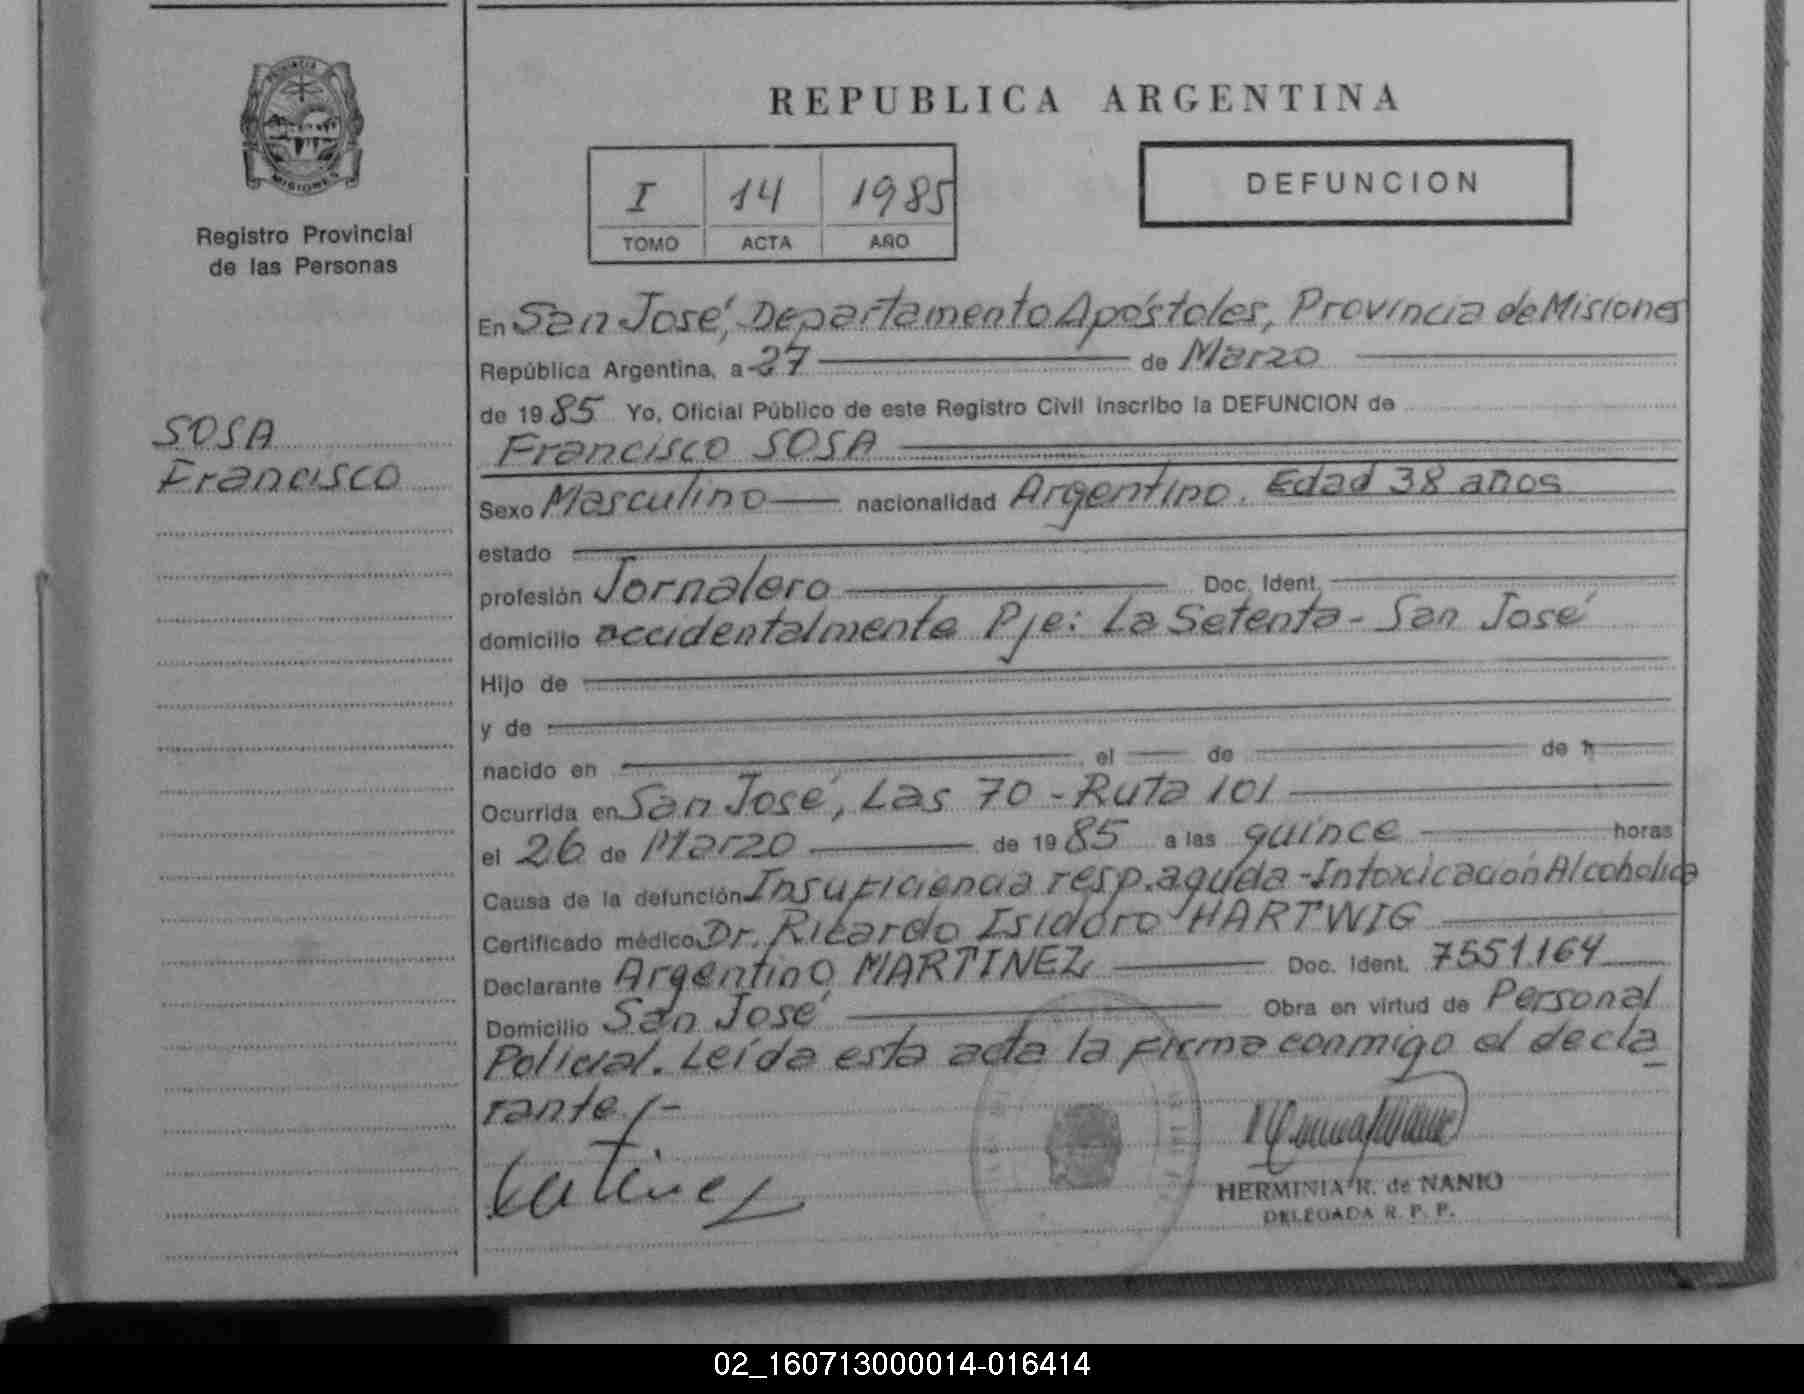 PROVINCIA
MISIONES
Registro Provincial
de las Personas
SOSA
Francisco
REPUBLICA ARGENTINA
I 14 1985
TOMO ACTA AÑO
DEFUNCION
En San José, Departamento Apóstoles, Provincia de Misiones
República Argentina, a 27 de Marzo
de 1985 Yo, Oficial Público de este Registro Civil inscribo la DEFUNCION de
Francisco SOSA
Sexo Masculino nacionalidad Argentino. Edad 38 años
estado
profesión Jornalero Doc. Ident.
domicilio accidentalmente Pje: La Setenta - San José
Hijo de
y de
nacido en el de de
Ocurrida en San José, Las 70 - Ruta 101
el 26 de Marzo de 1985 a las quince horas
Causa de la defunción Insuficiencia resp. aguda - Intoxicación Alcoholica
Certificado médico Dr. Ricardo Isidoro HARTWIG
Declarante Argentino MARTINEZ Doc. Ident. 7551164
Domicilio San José Obra en virtud de Personal
Policial. Leída esta acta la firma conmigo el decla
rante./-
HERMINIA R. de NANIO
DELEGADA R. P. P.
02_160713000014-016414